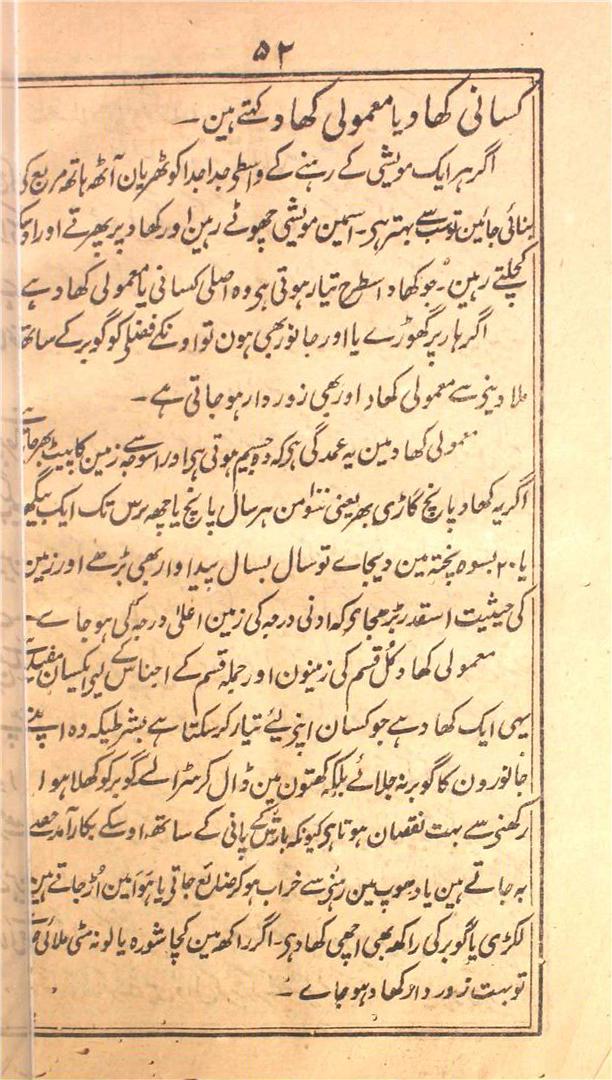 ۵۲
کسانی کھاد یا معمولی کھاد کہتے ہین ۔
اگر ہر ایک مویشی کے رہنے کے واسطے جدا جدا کوٹھریان آٹھ ہاتھ مربع کی
بنائی جائین تو سب سے بہتر ہی ۔ اسمین مویشی چھوٹے رہین اور کھاد پر پھرتے اور اوسکو
کچلتے رہین ۔ جو کھاد اسطرح تیار ہوتی ہی وہ اصلی کسانی یا معمولی کھاد ہے
اگر ہار پر گھوڑے یا اور جانور بھی ہون تو اونکے فضلے کو گوبر کے ساتھ
ملا دینے سے معمولی کھاد اور بھی زوردار ہو جاتی ہے ۔
معمولی کھاد مین یہ عمدگی ہی کہ وہ جسیم ہوتی ہی اور اسوجہ سے زمین کا پیٹ بھر جاتا
اگر یہ کھاد پانچ گاڑی بھر یعنی سَو من ہر سال پانچ یا چھ برس تک ایک بیگھہ
یا ۲۰ بسوہ پختہ مین دیجاے تو سال بسال پیداوار بھی بڑھے اور زمین
کی حیثیت اسقدر بڑھجاے کہ ادنی درجہ کی زمین اعلیٰ درجہ کی ہو جاے ۔
معمولی کھاد کُل قسم کی زمینون اور جملہ قسم کے اجناس کے لیے یکسان مفید ہے
یہی ایک کھاد ہے جو کسان اپنے لیے تیار کر سکتا ہے بشرطیکہ وہ اپنے
جانورون کا گوبر نہ جلائے بلکہ کھتون مین ڈال کر سڑا لے ۔ گوبر کو کھلا ہوا
رکھنے سے بہت نقصان ہوتا ہی کیونکہ بارش کے پانی کے ساتھ اوسکے بکارآمد حصے
بہ جاتے ہین یا دھوپ مین رہنے سے خراب ہو کر ضائع جاتی یا ہوا مین اُڑ جاتے ہین
لکڑی یا گوبر کی راکھ بھی اچھی کھاد ہی ۔ اگر راکھ مین کچا شورہ یا لونہ مٹی ملائی
تو بہت زور دار کھاد ہو جاے ۔